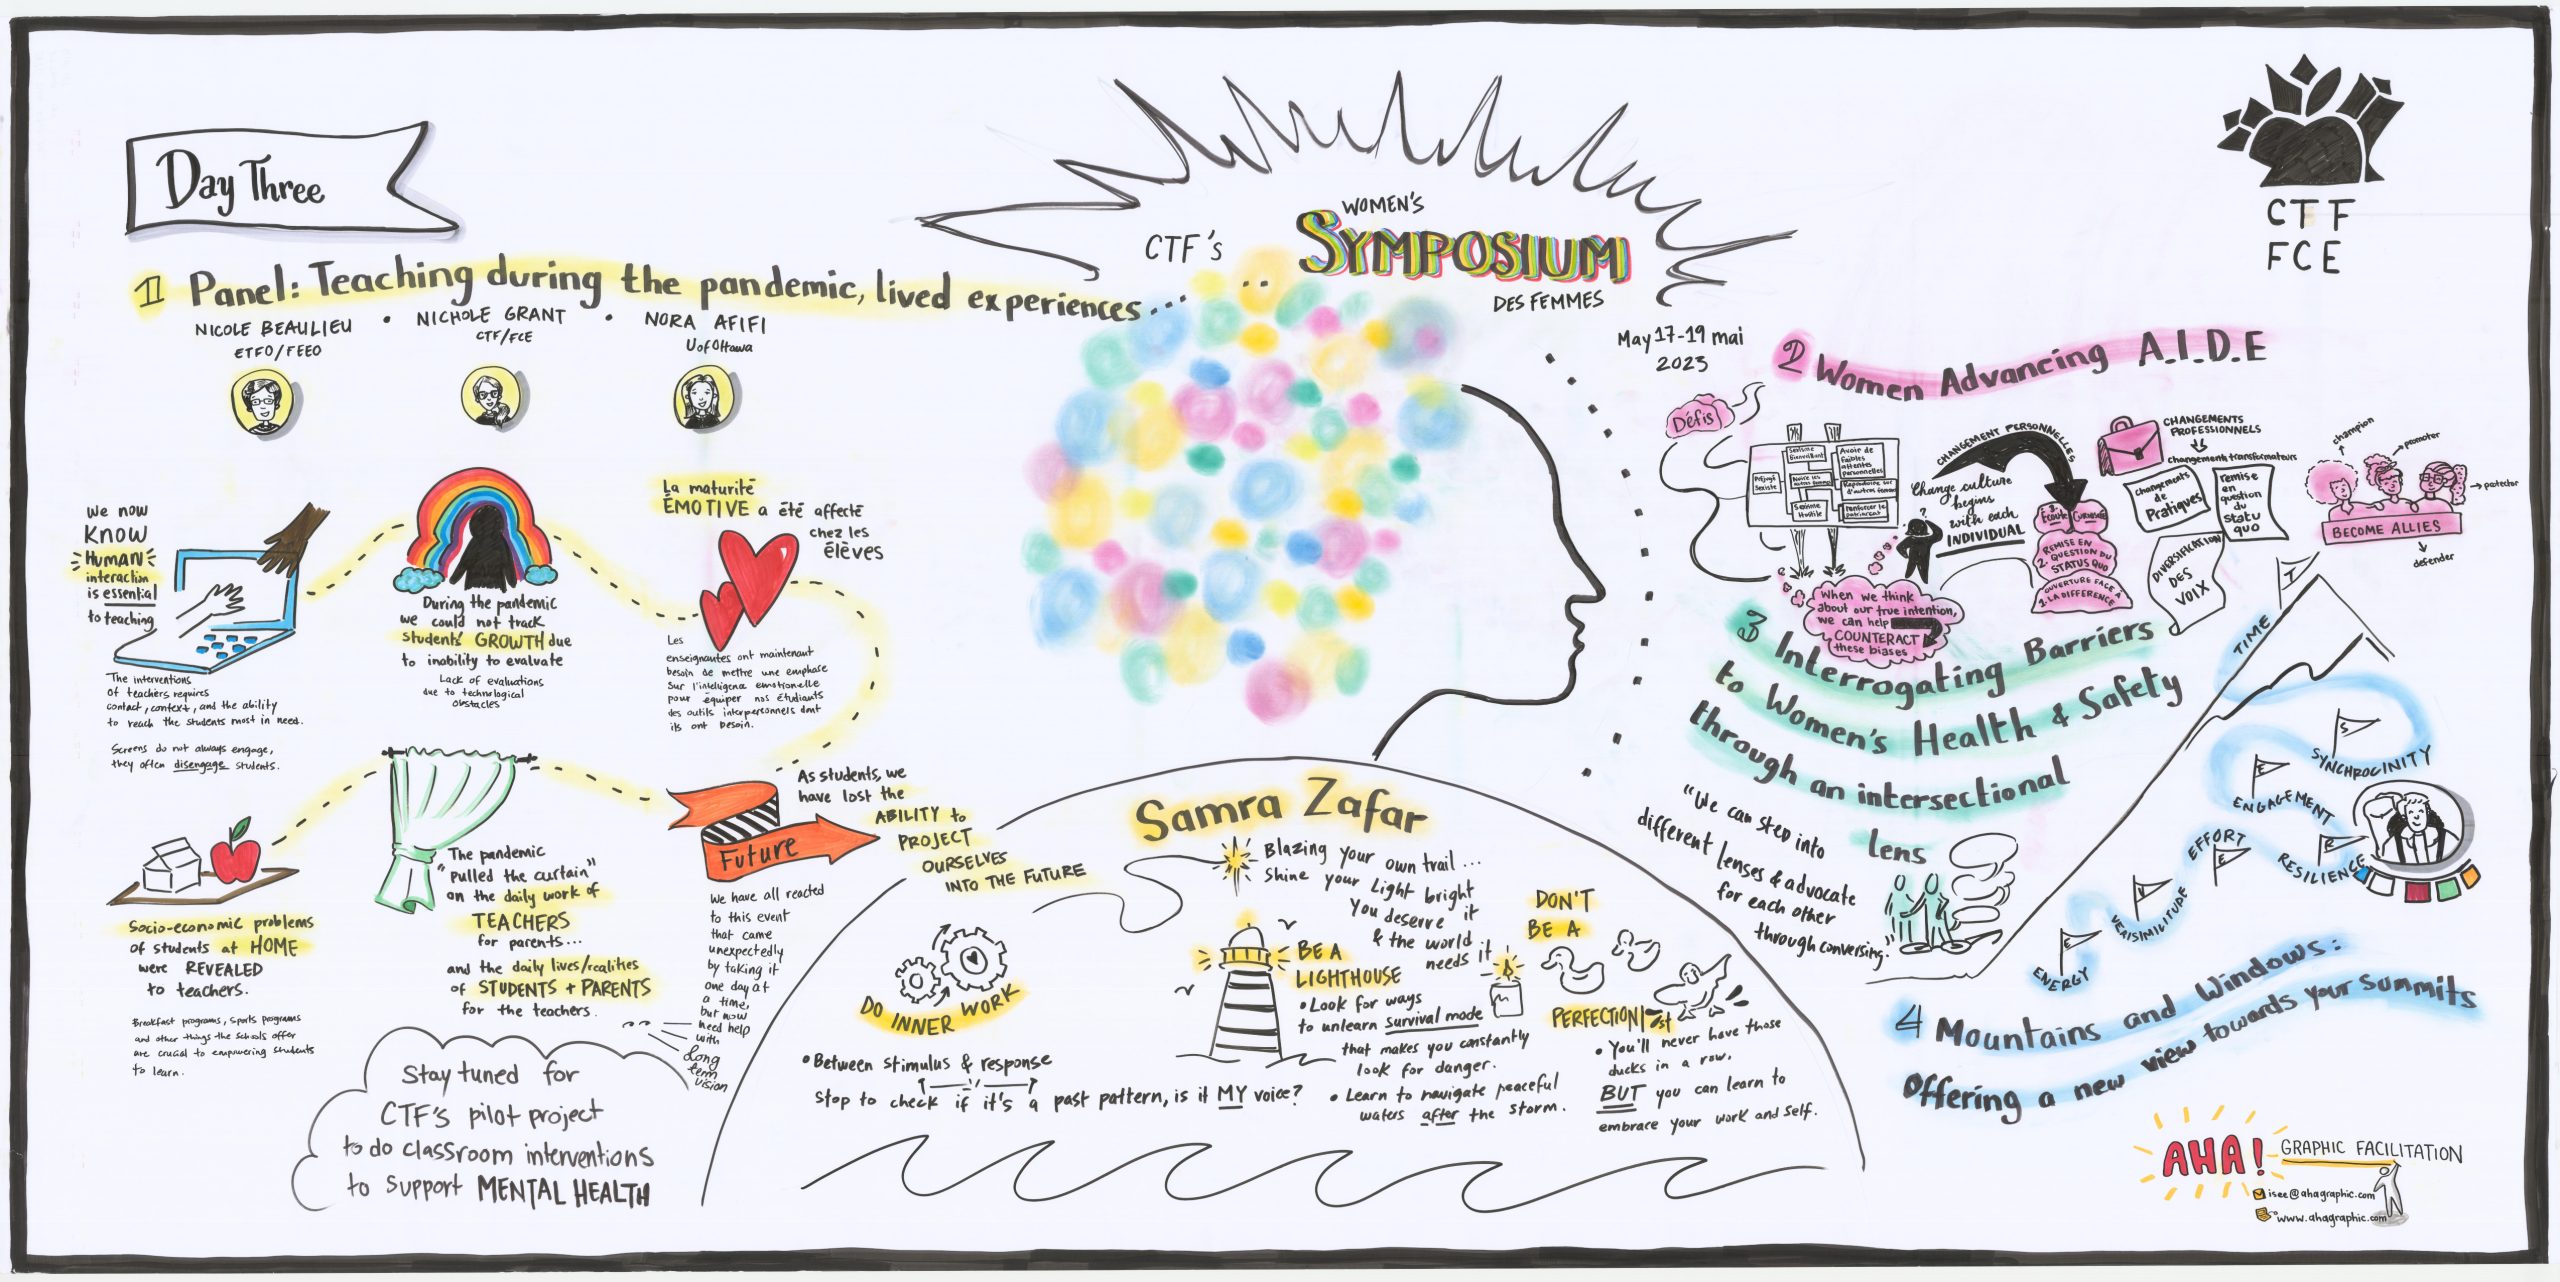 Day Three
CTF's
WOMEN'S
SYMPOSIUM
DES FEMMES
May 17-19 mai
2023
CTF
FCE
1 Panel: Teaching during the pandemic, lived experiences...
NICOLE BEAULIEU • NICHOLE GRANT • NORA AFIFI
ETFO/FEEO
CTF/FCE
U of Ottawa
we now
KNOW
HUMAN
interaction
is essential
to teaching
The interventions
of teachers requires
contact, context, and the ability
to reach the students most in need.
Screens do not always engage,
they often disengage students.
During the pandemic
we could not track
students' GROWTH due
to inability to evaluate
Lack of evaluations
due to technological
obstacles
La maturité
ÉMOTIVE a été affecté
chez les
élèves
Les
enseignantes ont maintenant
besoin de mettre une emphase
sur l'intelligence emotionelle
pour équiper nos étudiants
des outils interpersonnels dont
ils ont besoin.
Socio-economic problems
of students at HOME
were REVEALED
to teachers.
Breakfast programs, sports programs
and other things the schools offer
are crucial to empowering students
to learn.
The pandemic
"pulled the curtain"
on the daily work of
TEACHERS
for parents...
and the daily lives/realities
of STUDENTS + PARENTS
for the teachers.
Future
As students, we
have lost the
ABILITY to
PROJECT
OURSELVES
INTO THE FUTURE
We have all reacted
to this event
that came
unexpectedly
by taking it
one day at
a time,
but now
need help
with
Long
term
vision
Stay tuned for
CTF's pilot project
to do classroom interventions
to support MENTAL HEALTH
Samra Zafar
Blazing your own trail...
Shine your Light bright
You deserve it
& the world
needs it
DO INNER WORK
• Between stimulus & response
stop to check if it's a past pattern, is it MY voice?
BE A
LIGHTHOUSE
• Look for ways
to unlearn survival mode
that makes you constantly
look for danger.
• Learn to navigate peaceful
waters after the storm.
DON'T
BE A
PERFECTIONIST
• You'll never have those
ducks in a row.
BUT you can learn to
embrace your work and self.
2 Women Advancing A.I.D.E
Défis
Préjugé
Sexiste
Sexisme
Bienveillant
Sexisme
Hostile
Avoir de
faibles
attentes
personnelles
CHANGEMENT PERSONNELLES
Change culture
begins
with each
INDIVIDUAL
When we think
about our true intention,
we can help
COUNTERACT
these biases
REMISE EN
2. QUESTION DU
STATUS QUO
OUVERTURE FACE À
1. LA DIFFÉRENCE
CHANGEMENTS
PROFESSIONNELS
changements transformateurs
changements
de
Pratiques
remise
en
question
du
statu
quo
DIVERSIFICATION
DES
VOIX
champion
promoter
protector
BECOME ALLIES
defender
3 Interrogating Barriers
to Women's Health & Safety
through an intersectional
lens
"We can step into
different lenses & advocate
for each other
through conversing."
T
TIME
S
SYNCHROCINITY
E
ENGAGEMENT
R
RESILIENCE
E
EFFORT
V
VERISIMILITUDE
E
ENERGY
4 Mountains and Windows:
Offering a new view towards your summits
AHA! GRAPHIC FACILITATION
isee@ahagraphic.com
www.ahagraphic.com